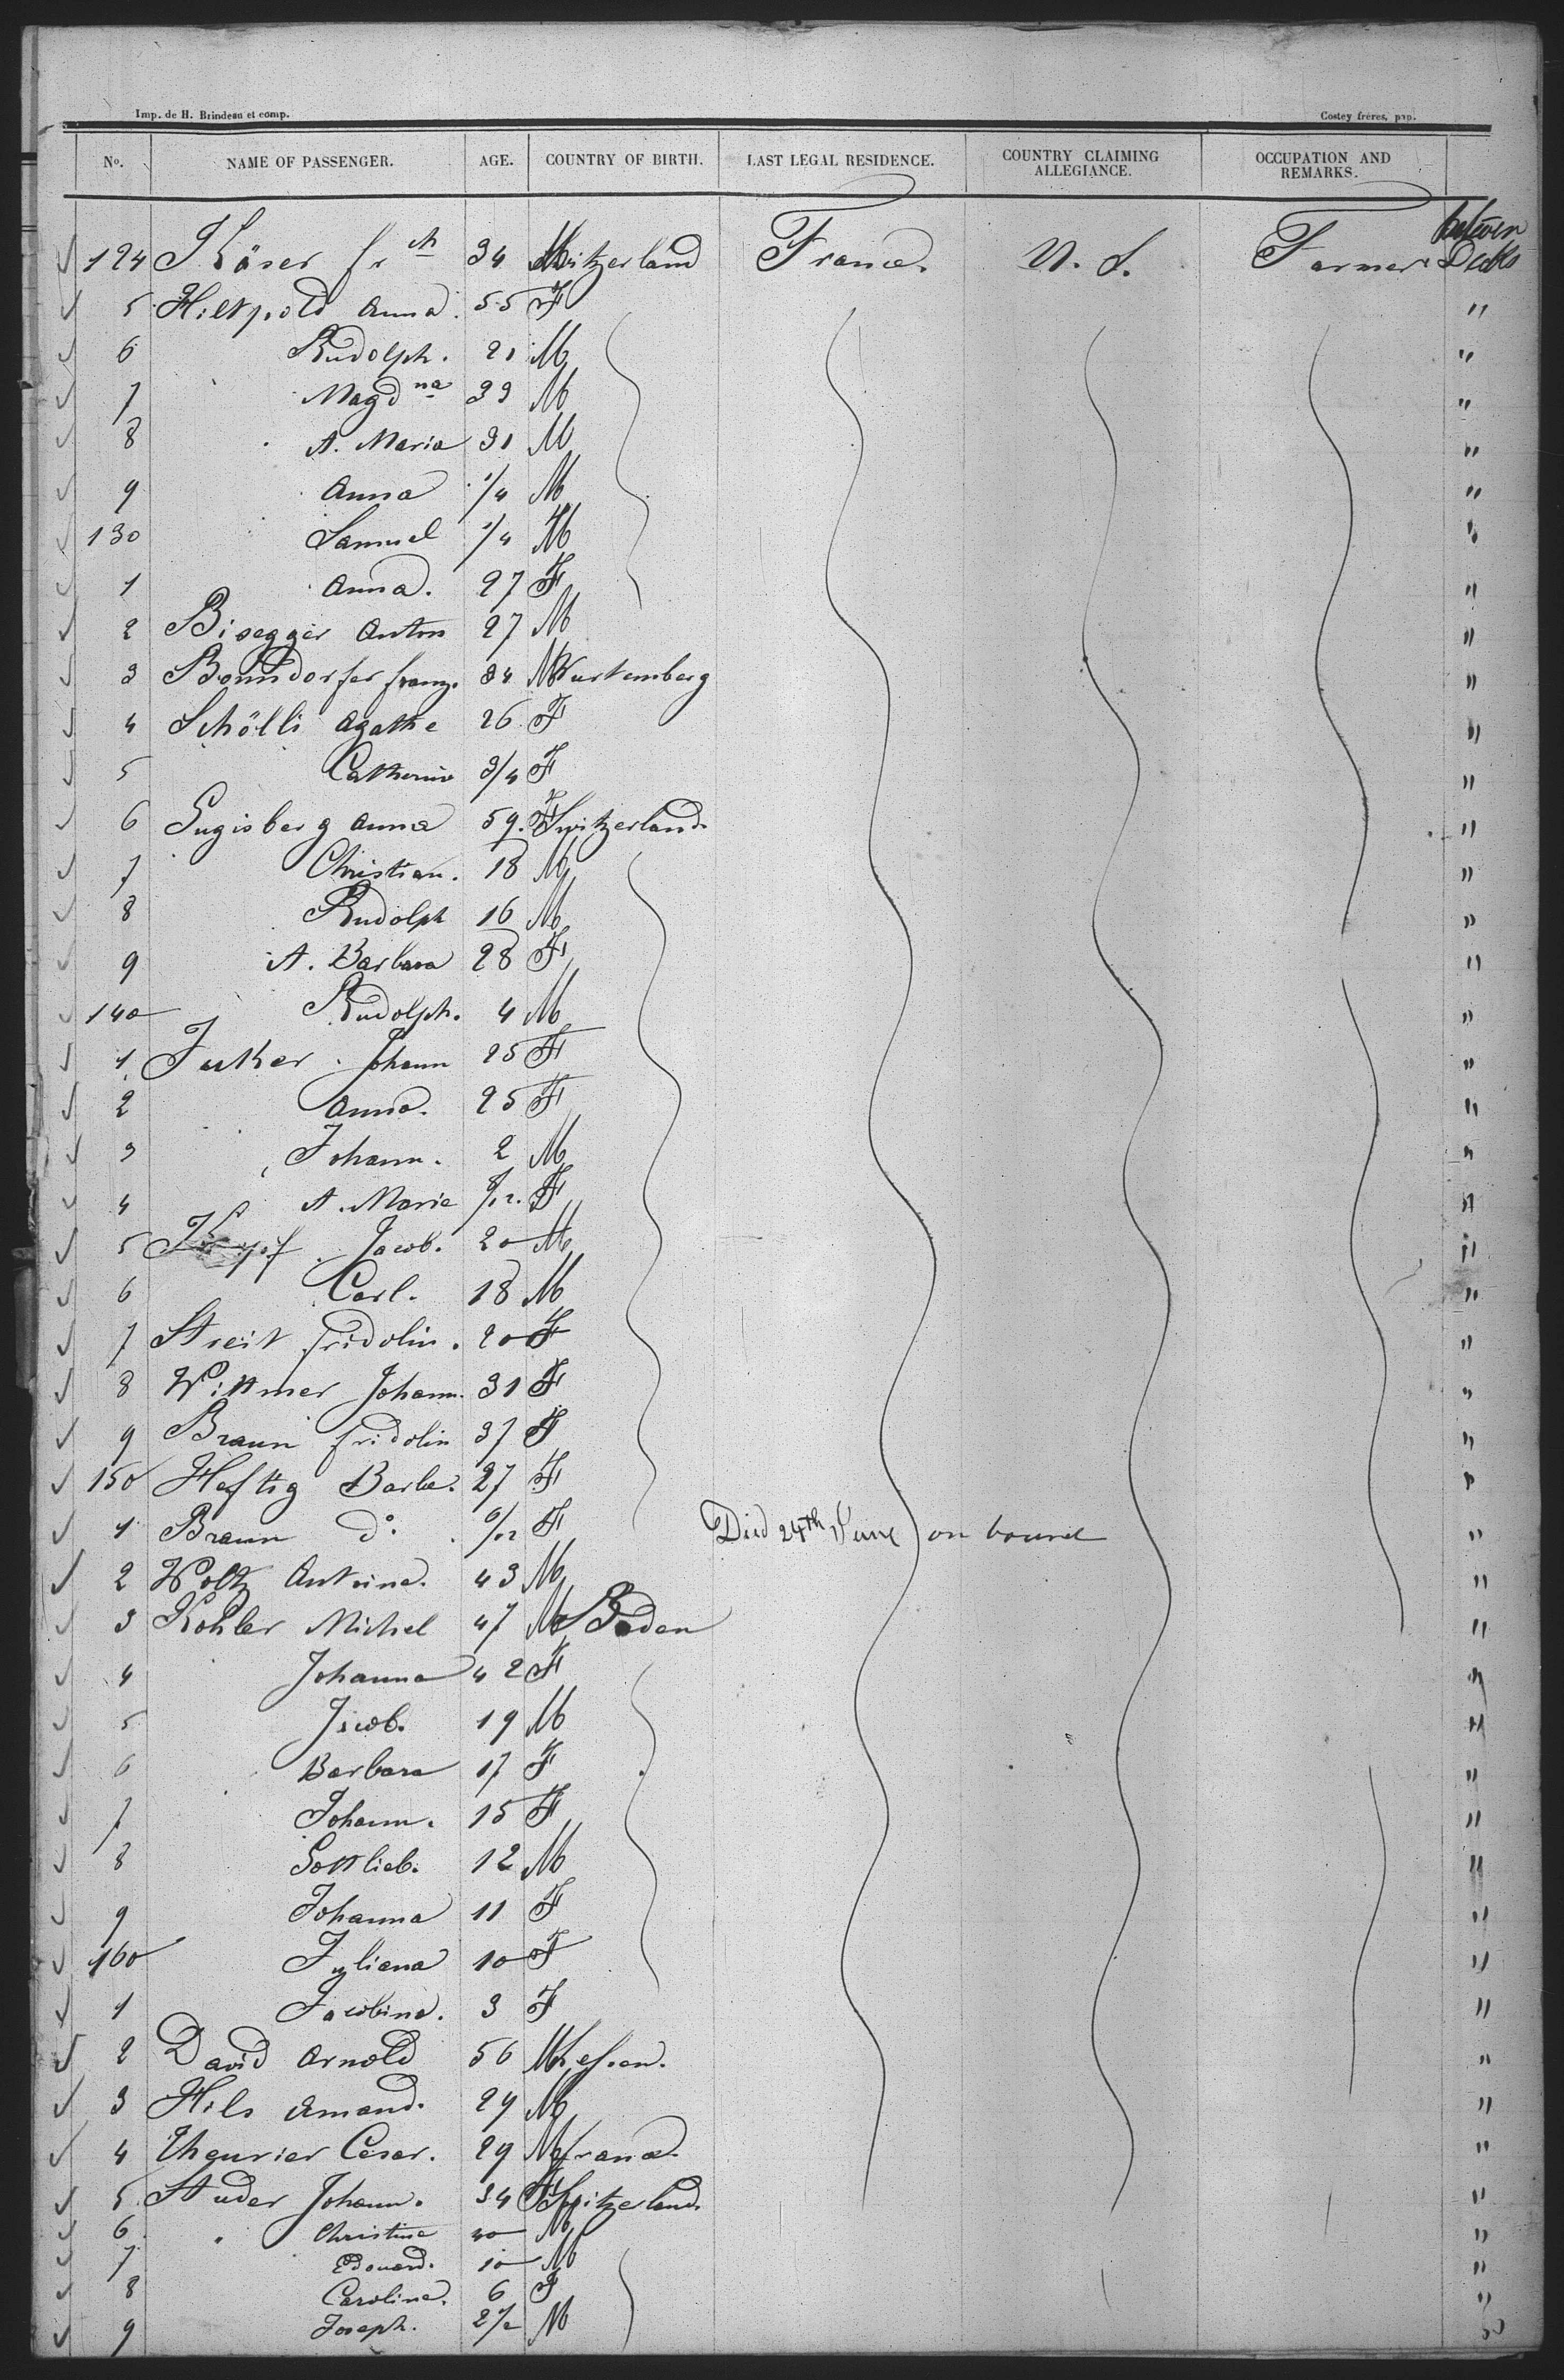 Imp. de H. Brindeau et comp. Costey frères, pap.
No. NAME OF PASSENGER. AGE. COUNTRY OF BIRTH. LAST LEGAL RESIDENCE. COUNTRY CLAIMING ALLEGIANCE. OCCUPATION AND REMARKS.
124 Käser frch 34 M Switzerland France. U. S. Farmer between Decks
5 Hiltpold Anna. 55 F "
6 Rudolph. 21 M "
7 Magdna 33 M "
8 A. Maria 31 M "
9 Anna 1/4 M "
130 Samuel 1/4 M "
1 Anna. 27 F "
2 Bisegger Anton 27 M "
3 Bonndorfer franz. 34 M Wurtemberg "
4 Schölli Agathe 26 F "
5 Catherine 3/4 F "
6 Gugisberg Anna 59. F Switzerland "
7 Christian. 18 M "
8 Rudolph 16 M "
9 A. Barbara 28 F "
140 Rudolph. 4 M "
1 Juker Johann 25 F "
2 Anna. 25 F "
3 Johann. 2 M "
4 A. Marie 8/12. F "
5 Jacob. 20 M "
6 Carl. 18 M "
7 Streit fridolin. 20 F "
8 Wittmer Johann. 31 F "
9 Braun fridolin 37 F "
150 Heftig Barba. 27 F "
1 Braun do. 6/12 F Died 24th June on bourd "
2 Woltz Antoine. 43 M "
3 Kohler Michel 47 M Baden "
4 Johanna 42 F "
5 Jacob. 19 M "
6 Barbara 17 F "
7 Johann. 15 F "
8 Gottlieb. 12 M "
9 Johanna 11 F "
160 Juliana 10 F "
1 Jacobina. 3 F "
2 David Arnold 56 M Hessen. "
3 Hils Amand. 29 M "
4 Theurier Cesar. 29 M france. "
5 Studer Johann. 34 F Switzerland. "
6 " Christine 40 M "
7 Edouard. 10 M "
8 Caroline. 6 F "
9 Joseph. 2 1/2 M